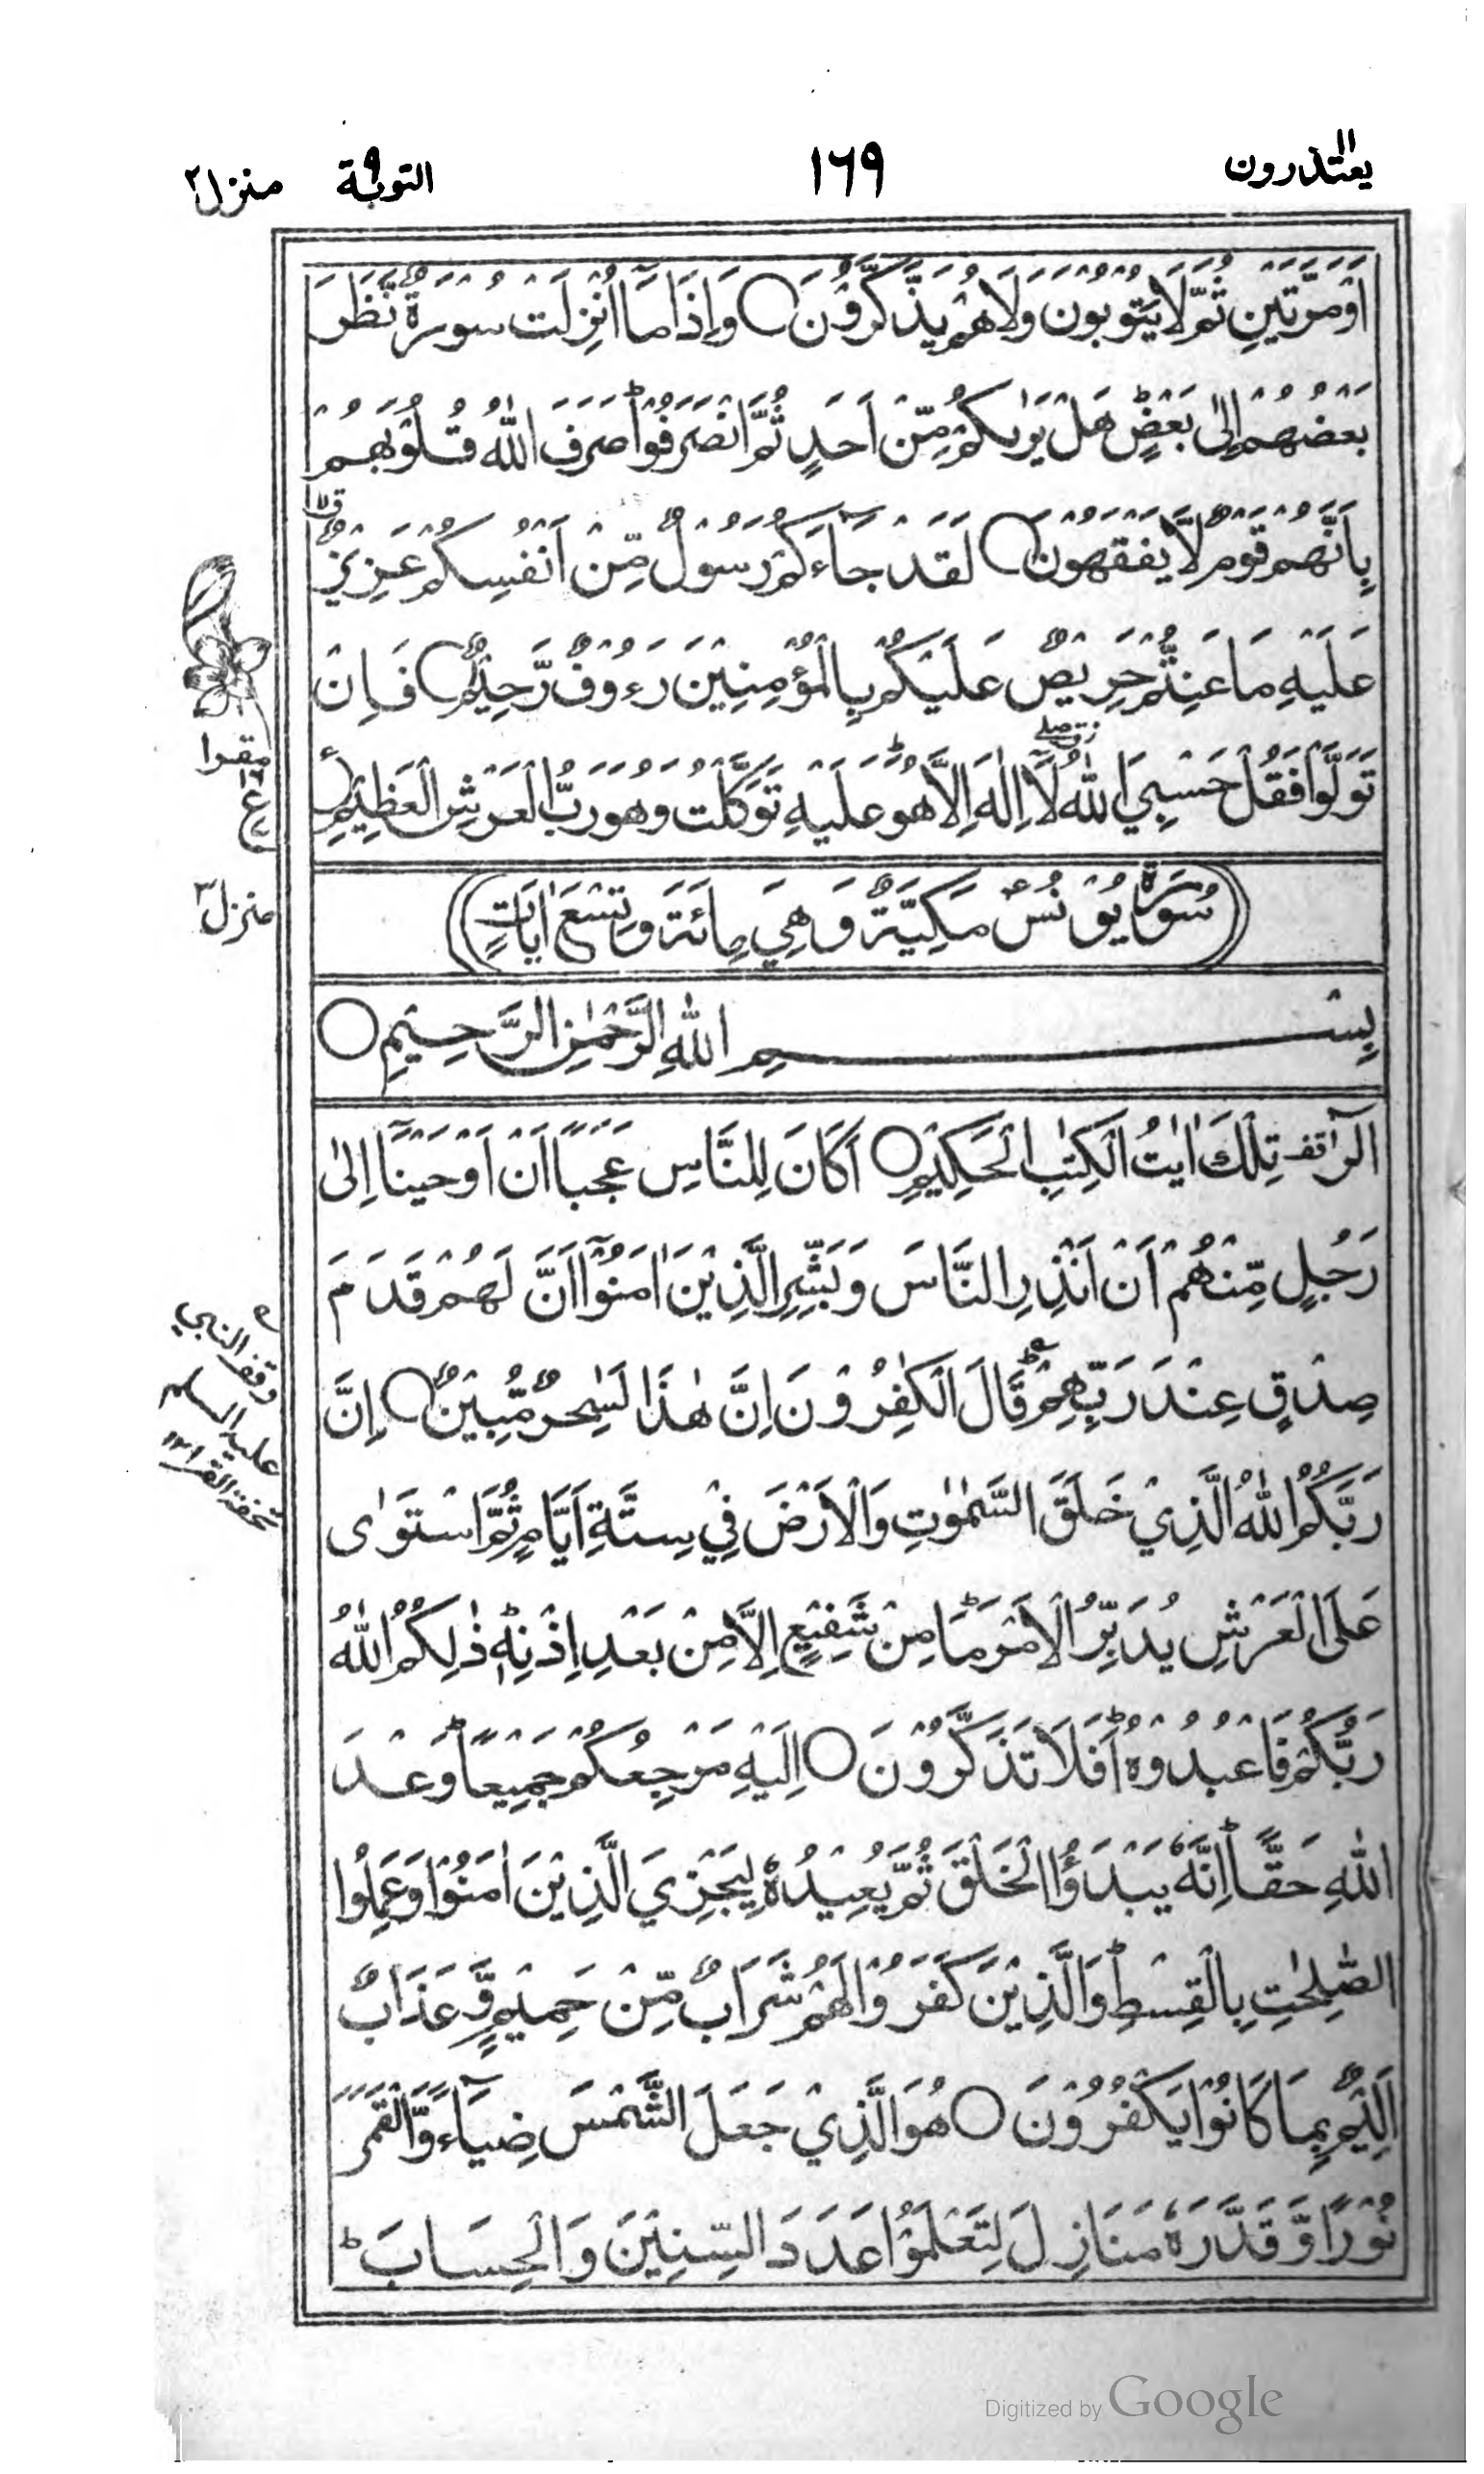 يعتذرون ١١
١٦٩
التوبة ٩
منزل ٢
اَوْ مَرَّتَيْنِ ثُمَّ لَا يَتُوْبُوْنَ وَلَا هُمْ يَذَّكَّرُوْنَ ○ وَاِذَا مَآ اُنْزِلَتْ سُوْرَةٌ نَّظَرَ
بَعْضُهُمْ اِلٰى بَعْضٍ ط هَلْ يَرٰىكُمْ مِّنْ اَحَدٍ ثُمَّ انْصَرَفُوْا ط صَرَفَ اللّٰهُ قُلُوْبَهُمْ
بِاَنَّهُمْ قَوْمٌ لَّا يَفْقَهُوْنَ ○ لَقَدْ جَآءَكُمْ رَسُوْلٌ مِّنْ اَنْفُسِكُمْ عَزِيْزٌ
عَلَيْهِ مَا عَنِتُّمْ حَرِيْصٌ عَلَيْكُمْ بِالْمُؤْمِنِيْنَ رَءُوْفٌ رَّحِيْمٌ ○ فَاِنْ
تَوَلَّوْا فَقُلْ حَسْبِيَ اللّٰهُ لَآ اِلٰهَ اِلَّا هُوَ ط عَلَيْهِ تَوَكَّلْتُ وَهُوَ رَبُّ الْعَرْشِ الْعَظِيْمِ
ع
منزل ٣
سُوْرَةُ يُوْنُسَ مَكِّيَّةٌ وَهِيَ مِائَةٌ وَتِسْعُ اٰيَاتٍ
بِسْمِ اللّٰهِ الرَّحْمٰنِ الرَّحِيْمِ ○
الٓرٰ قف تِلْكَ اٰيٰتُ الْكِتٰبِ الْحَكِيْمِ ○ اَكَانَ لِلنَّاسِ عَجَبًا اَنْ اَوْحَيْنَآ اِلٰى
رَجُلٍ مِّنْهُمْ اَنْ اَنْذِرِ النَّاسَ وَبَشِّرِ الَّذِيْنَ اٰمَنُوْٓا اَنَّ لَهُمْ قَدَمَ
صِدْقٍ عِنْدَ رَبِّهِمْ ط قَالَ الْكٰفِرُوْنَ اِنَّ هٰذَا لَسٰحِرٌ مُّبِيْنٌ ○ اِنَّ
وقف النبي
عليه السلام
رَبَّكُمُ اللّٰهُ الَّذِيْ خَلَقَ السَّمٰوٰتِ وَالْاَرْضَ فِيْ سِتَّةِ اَيَّامٍ ثُمَّ اسْتَوٰى
عَلَى الْعَرْشِ يُدَبِّرُ الْاَمْرَ ط مَا مِنْ شَفِيْعٍ اِلَّا مِنْ بَعْدِ اِذْنِهٖ ط ذٰلِكُمُ اللّٰهُ
رَبُّكُمْ فَاعْبُدُوْهُ ط اَفَلَا تَذَكَّرُوْنَ ○ اِلَيْهِ مَرْجِعُكُمْ جَمِيْعًا ط وَعْدَ
اللّٰهِ حَقًّا ط اِنَّهٗ يَبْدَؤُا الْخَلْقَ ثُمَّ يُعِيْدُهٗ لِيَجْزِيَ الَّذِيْنَ اٰمَنُوْا وَعَمِلُوا
الصّٰلِحٰتِ بِالْقِسْطِ ط وَالَّذِيْنَ كَفَرُوْا لَهُمْ شَرَابٌ مِّنْ حَمِيْمٍ وَّعَذَابٌ
اَلِيْمٌ بِمَا كَانُوْا يَكْفُرُوْنَ ○ هُوَ الَّذِيْ جَعَلَ الشَّمْسَ ضِيَآءً وَّالْقَمَرَ
نُوْرًا وَّقَدَّرَهٗ مَنَازِلَ لِتَعْلَمُوْا عَدَدَ السِّنِيْنَ وَالْحِسَابَ ط
Digitized by Google